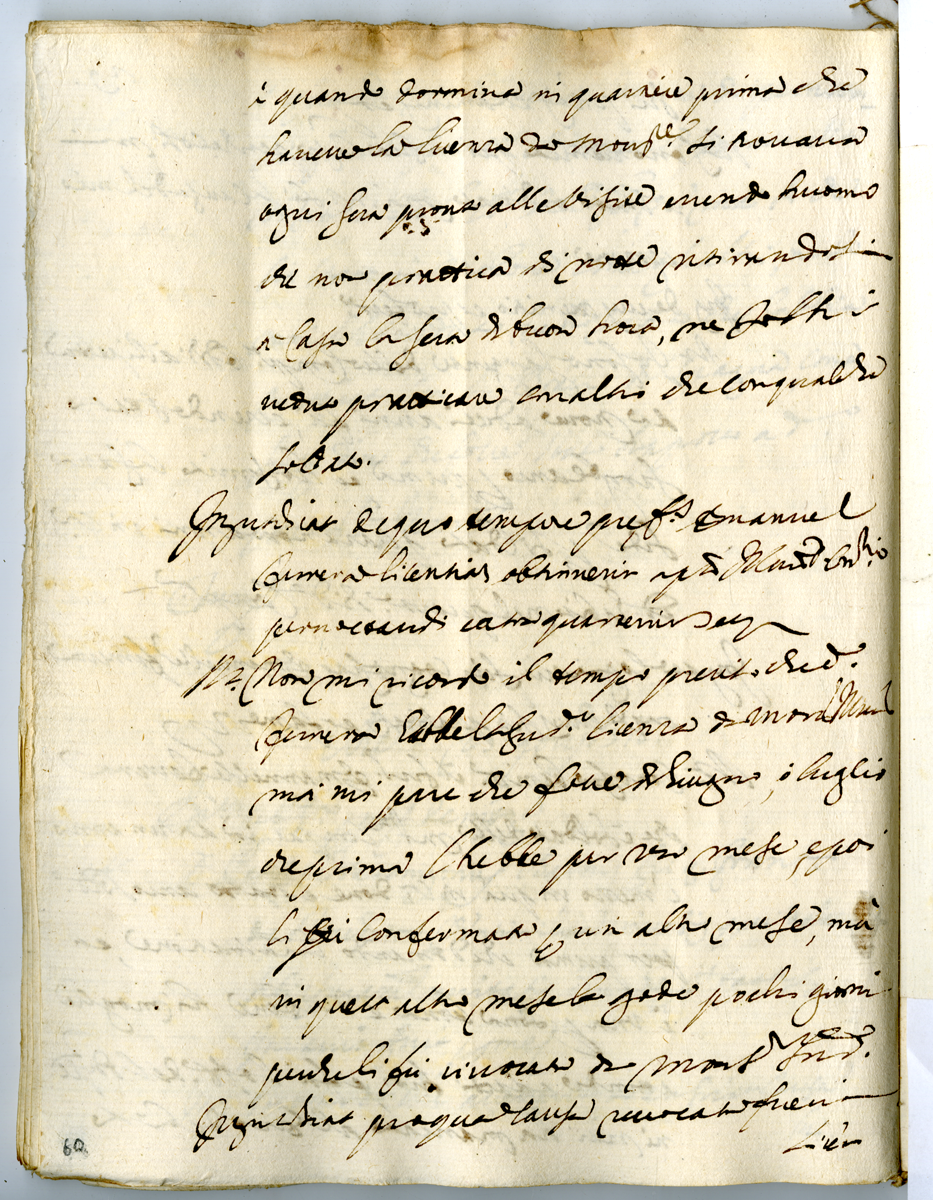 e quando dormiva in quartiere prima che
havesse la licenza da Mons.re si trovava
ogni sera pronto alle visite essendo huomo
che non prattica di notte ritirandosi
a casa la sera di buon hora, ne l'ho
veduto pratticare con altri che con qualche
soldato.
Interrogatus de quo tempore Emanuel
Ferrera licentiam obtinuerit
pernoctandi extra quarterium
R. Non mi ricordo il tempo preciso che d.
Ferrera hebbe la sud.a licenza da Mons.
mà mi pare che fosse di Giugno, ò luglio
che prima l'hebbe per un mese, e poi
li fu confermata p un altro mese, mà
in quest altro mese la gode pochi giorni
perche li fù rivocata da Mons.r Sud.
Interrogatus pro qua causa revocata fuerit
licen
60